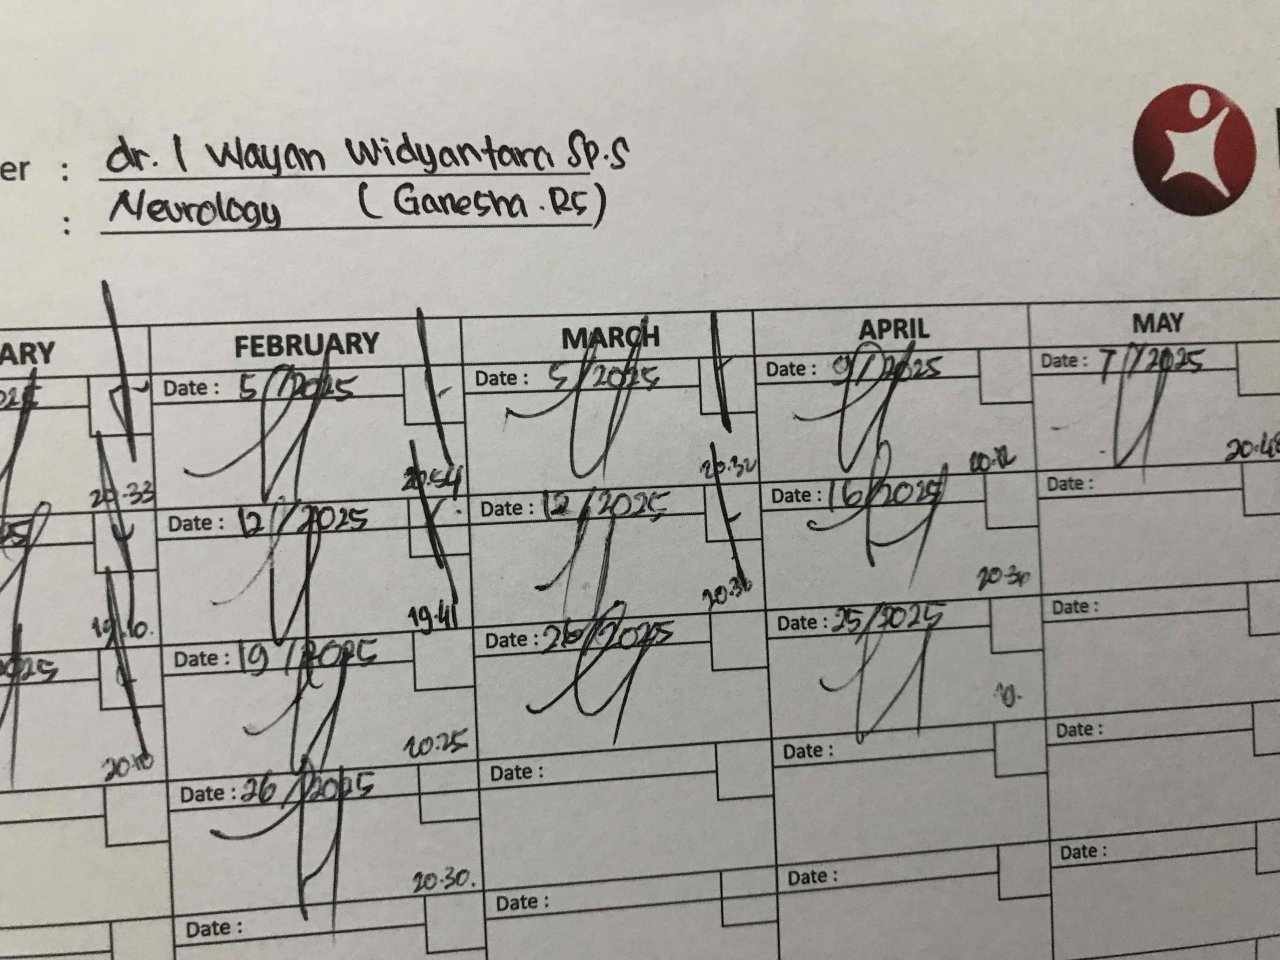 er : dr. I Wayan Widyantara Sp.S
: Neurology (Ganesha.RS)
ARY FEBRUARY MARCH APRIL MAY
Date : 5/2025 Date : 5/2025 Date : 9/2025 Date : 7/2025
20.33 20.54 20.32 20.48
Date : 12/2025 Date : 12/2025 Date : 16/2025 Date :
19.10. 19.41 20.30
Date : 19/2025 Date : 26/2025 Date : 25/2025 Date :
20.10 20.25
Date : 26/2025 Date : Date : Date :
20.30.
Date : Date : Date : Date :